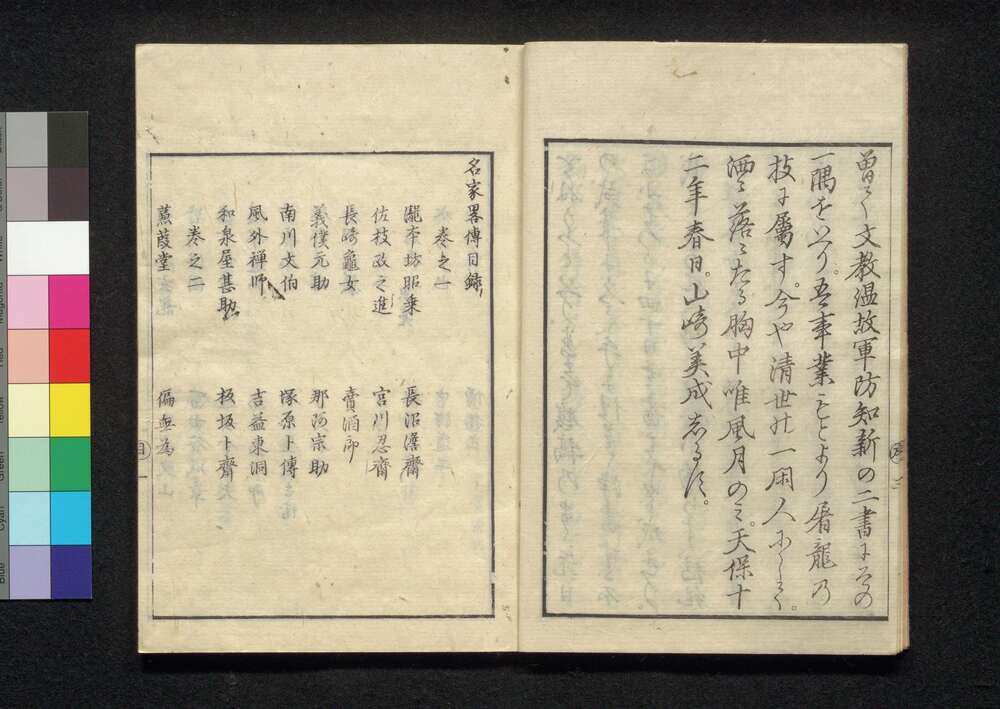 曽て文教温故軍防知新の二書にその
一隅をいへり。吾事業もとより屠龍乃
技に屬す。今や清世の一閑人にして。
洒々落々たる胸中唯風月のミ。天保十
二年春日。山崎美成しるす。
名家畧傳目録
卷之一
瀧本坊昭乗 長沼澹齋
佐枝政之進 宮川忍齋
長崎龜女 賣酒郎
義僕元助 那河宗助
南川文伯 塚原卜傳
風外禅師 吉益東洞
和泉屋甚助 板坂卜齋
卷之二
蒹葭堂 偏無為
目 一